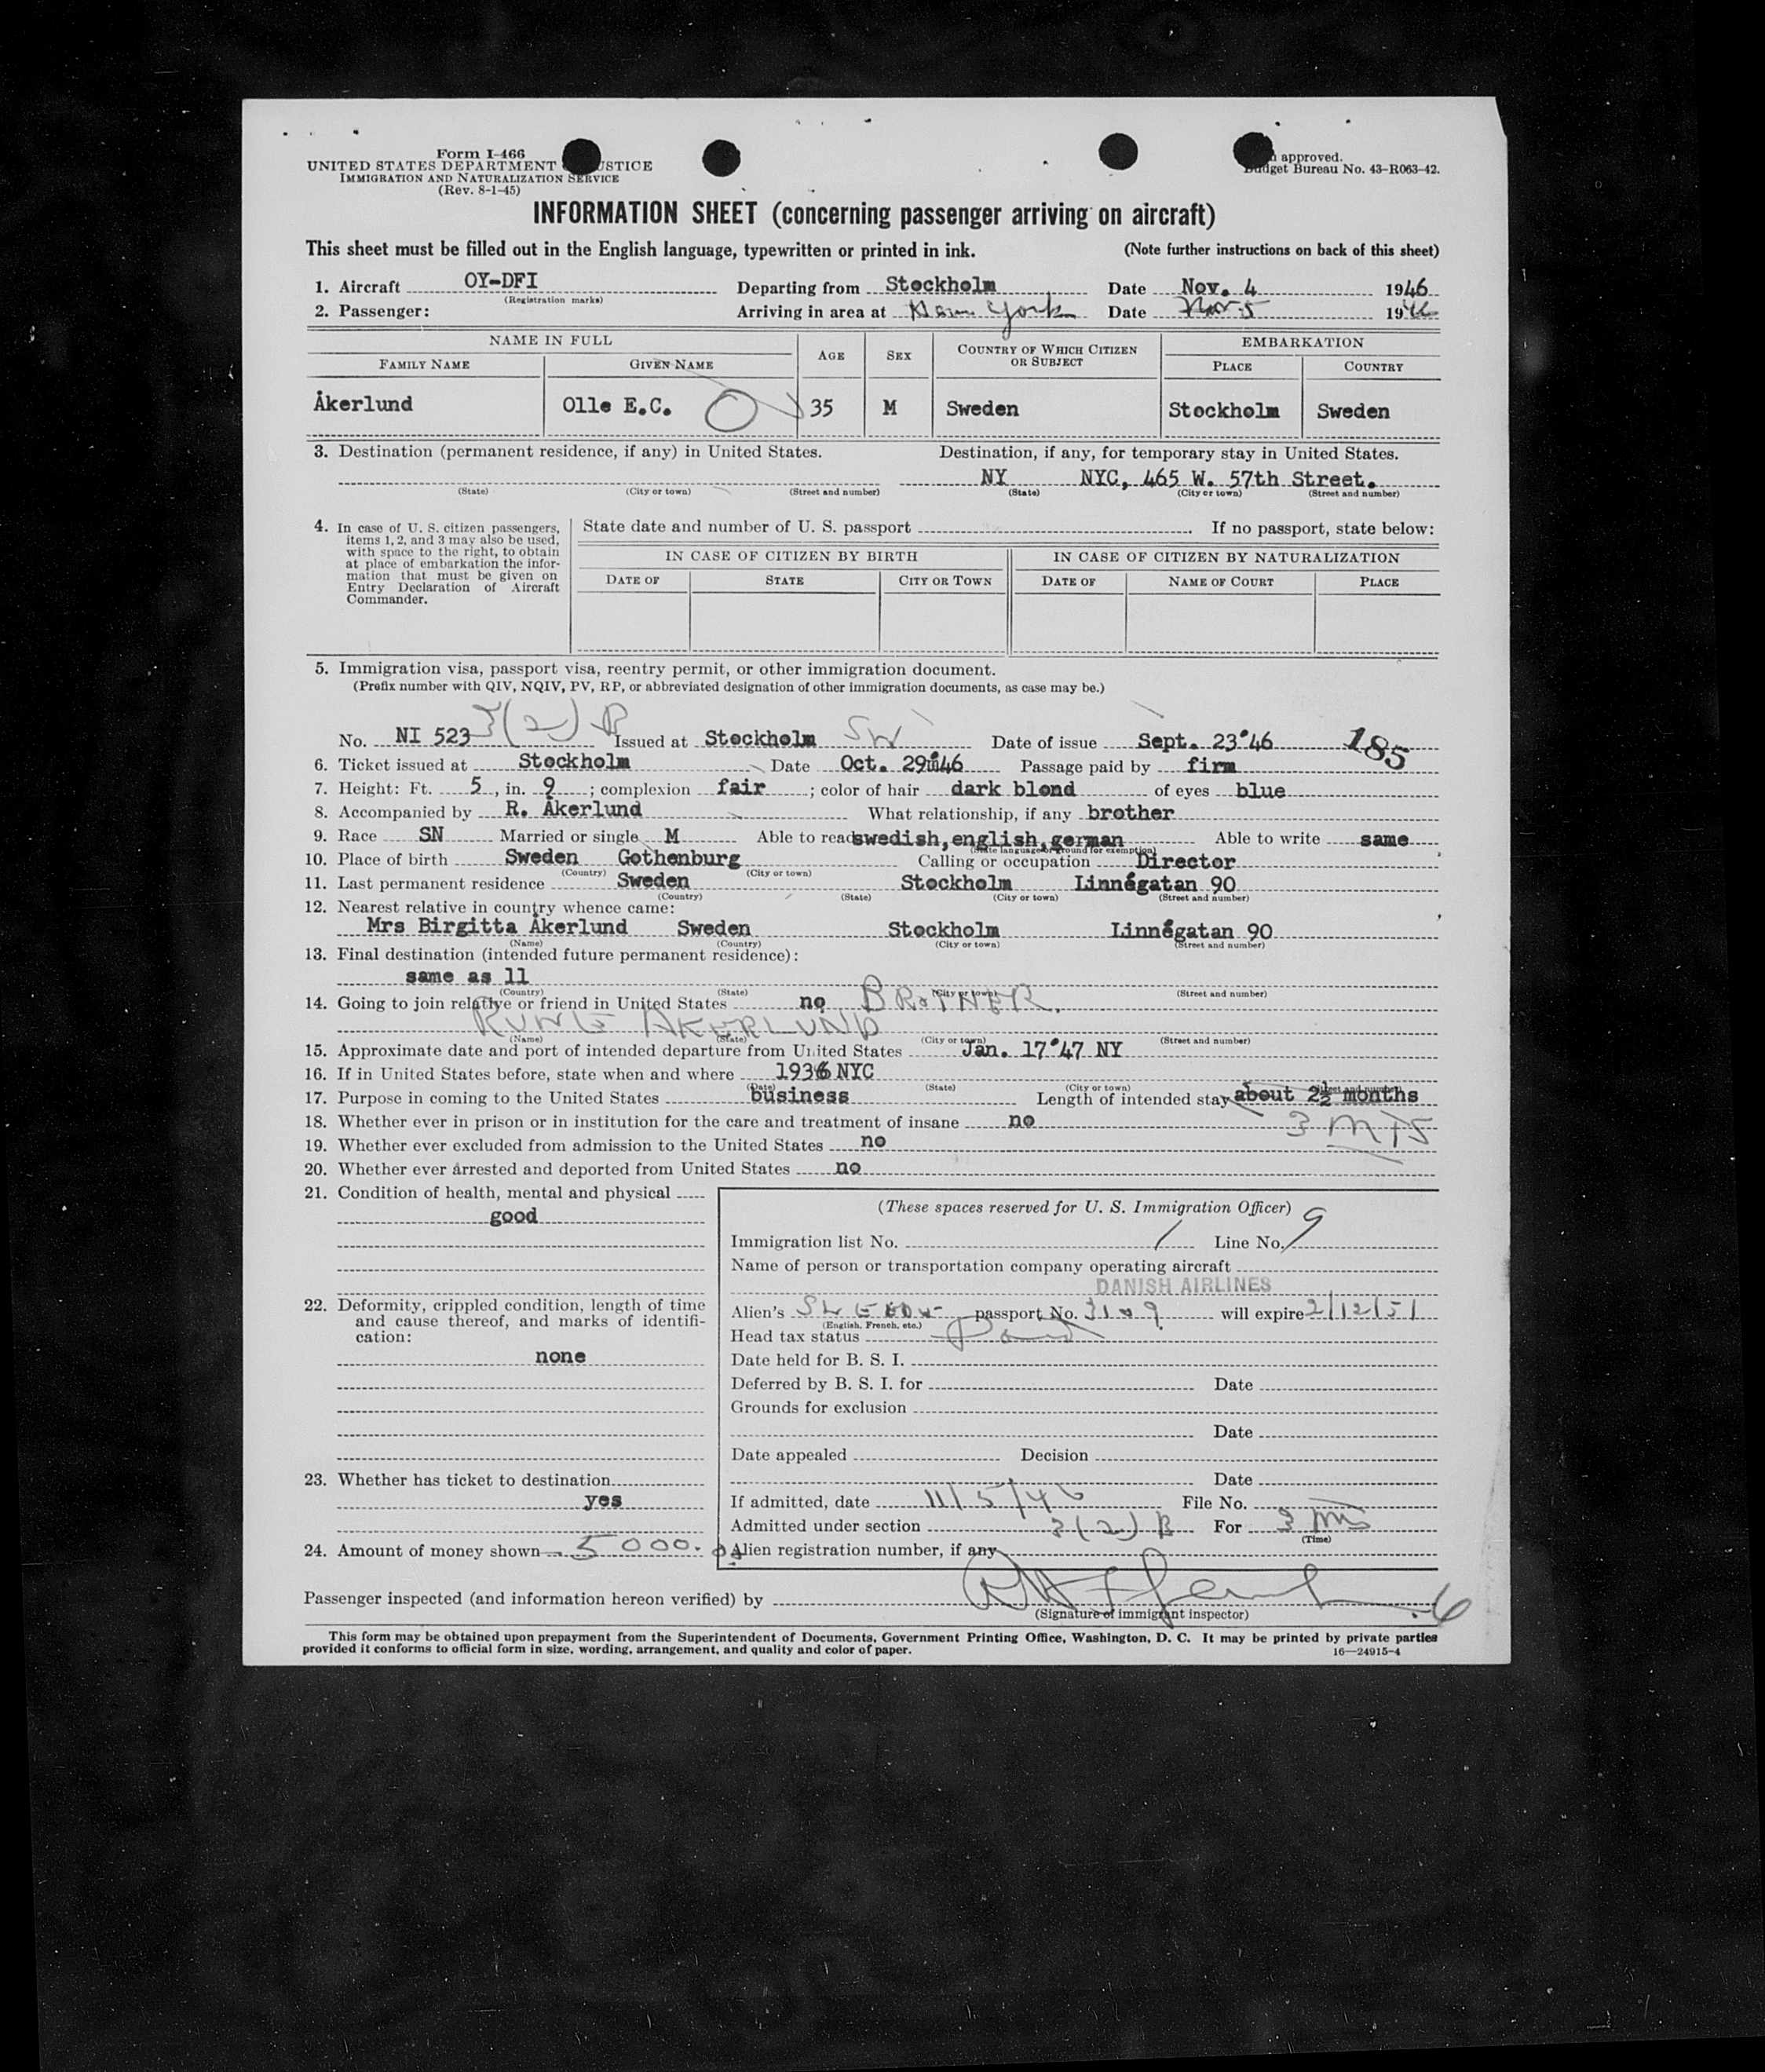 Form I-466
UNITED STATES DEPARTMENT USTICE
IMMIGRATION AND NATURALIZATION SERVICE
(Rev. 8-1-45)
approved.
Budget Bureau No. 43-R063-42.
INFORMATION SHEET (concerning passenger arriving on aircraft)
This sheet must be filled out in the English language, typewritten or printed in ink. (Note further instructions on back of this sheet)
1. Aircraft OY-DFI Departing from Stockholm Date Nov. 4 1946
(Registration marks)
2. Passenger: Arriving in area at New York Date Nov. 5 1946
NAME IN FULL AGE SEX COUNTRY OF WHICH CITIZEN OR SUBJECT EMBARKATION
FAMILY NAME GIVEN NAME PLACE COUNTRY
Åkerlund Olle E.C. 35 M Sweden Stockholm Sweden
3. Destination (permanent residence, if any) in United States. Destination, if any, for temporary stay in United States.
NY NYC, 465 W. 57th Street.
(State) (City or town) (Street and number) (State) (City or town) (Street and number)
4. In case of U. S. citizen passengers, items 1, 2, and 3 may also be used, with space to the right, to obtain at place of embarkation the information that must be given on Entry Declaration of Aircraft Commander.
State date and number of U. S. passport If no passport, state below:
IN CASE OF CITIZEN BY BIRTH IN CASE OF CITIZEN BY NATURALIZATION
DATE OF STATE CITY OR TOWN DATE OF NAME OF COURT PLACE
5. Immigration visa, passport visa, reentry permit, or other immigration document.
(Prefix number with QIV, NQIV, PV, RP, or abbreviated designation of other immigration documents, as case may be.)
3(2) B SW
No. NI 523 Issued at Stockholm Date of issue Sept. 23'46 185
6. Ticket issued at Stockholm Date Oct. 29'46 Passage paid by firm
7. Height: Ft. 5, in. 9; complexion fair; color of hair dark blond of eyes blue
8. Accompanied by R. Åkerlund What relationship, if any brother
9. Race SN Married or single M Able to read swedish, english, german Able to write same
(State language or ground for exemption)
10. Place of birth Sweden Gothenburg Calling or occupation Director
(Country) (City or town)
11. Last permanent residence Sweden Stockholm Linnégatan 90
(Country) (State) (City or town) (Street and number)
12. Nearest relative in country whence came:
Mrs Birgitta Åkerlund Sweden Stockholm Linnégatan 90
(Name) (Country) (City or town) (Street and number)
13. Final destination (intended future permanent residence):
same as 11
(Country) (State) (City or town) (Street and number)
14. Going to join relative or friend in United States no BROTHER.
RUNE AKERLUND
(Name) (State) (City or town) (Street and number)
15. Approximate date and port of intended departure from United States Jan. 17'47 NY
16. If in United States before, state when and where 1936 NYC
(Date) (State) (City or town) (Street and number)
17. Purpose in coming to the United States business Length of intended stay about 2½ months
18. Whether ever in prison or in institution for the care and treatment of insane no 3 MTS
19. Whether ever excluded from admission to the United States no
20. Whether ever arrested and deported from United States no
21. Condition of health, mental and physical
good
22. Deformity, crippled condition, length of time and cause thereof, and marks of identification:
none
23. Whether has ticket to destination
yes
24. Amount of money shown 5000.00
(These spaces reserved for U. S. Immigration Officer)
Immigration list No. 1 Line No. 9
Name of person or transportation company operating aircraft
DANISH AIRLINES
Alien's passport No. 3109 will expire 2/12/51
(English, French, etc.)
Head tax status Paid
Date held for B. S. I.
Deferred by B. S. I. for Date
Grounds for exclusion
Date
Date appealed Decision
Date
If admitted, date 11/5/46 File No.
Admitted under section 3(2) B For 3 mts
(Time)
Alien registration number, if any
Passenger inspected (and information hereon verified) by
(Signature of immigrant inspector)
This form may be obtained upon prepayment from the Superintendent of Documents, Government Printing Office, Washington, D. C. It may be printed by private parties
provided it conforms to official form in size, wording, arrangement, and quality and color of paper. 16—24915-4